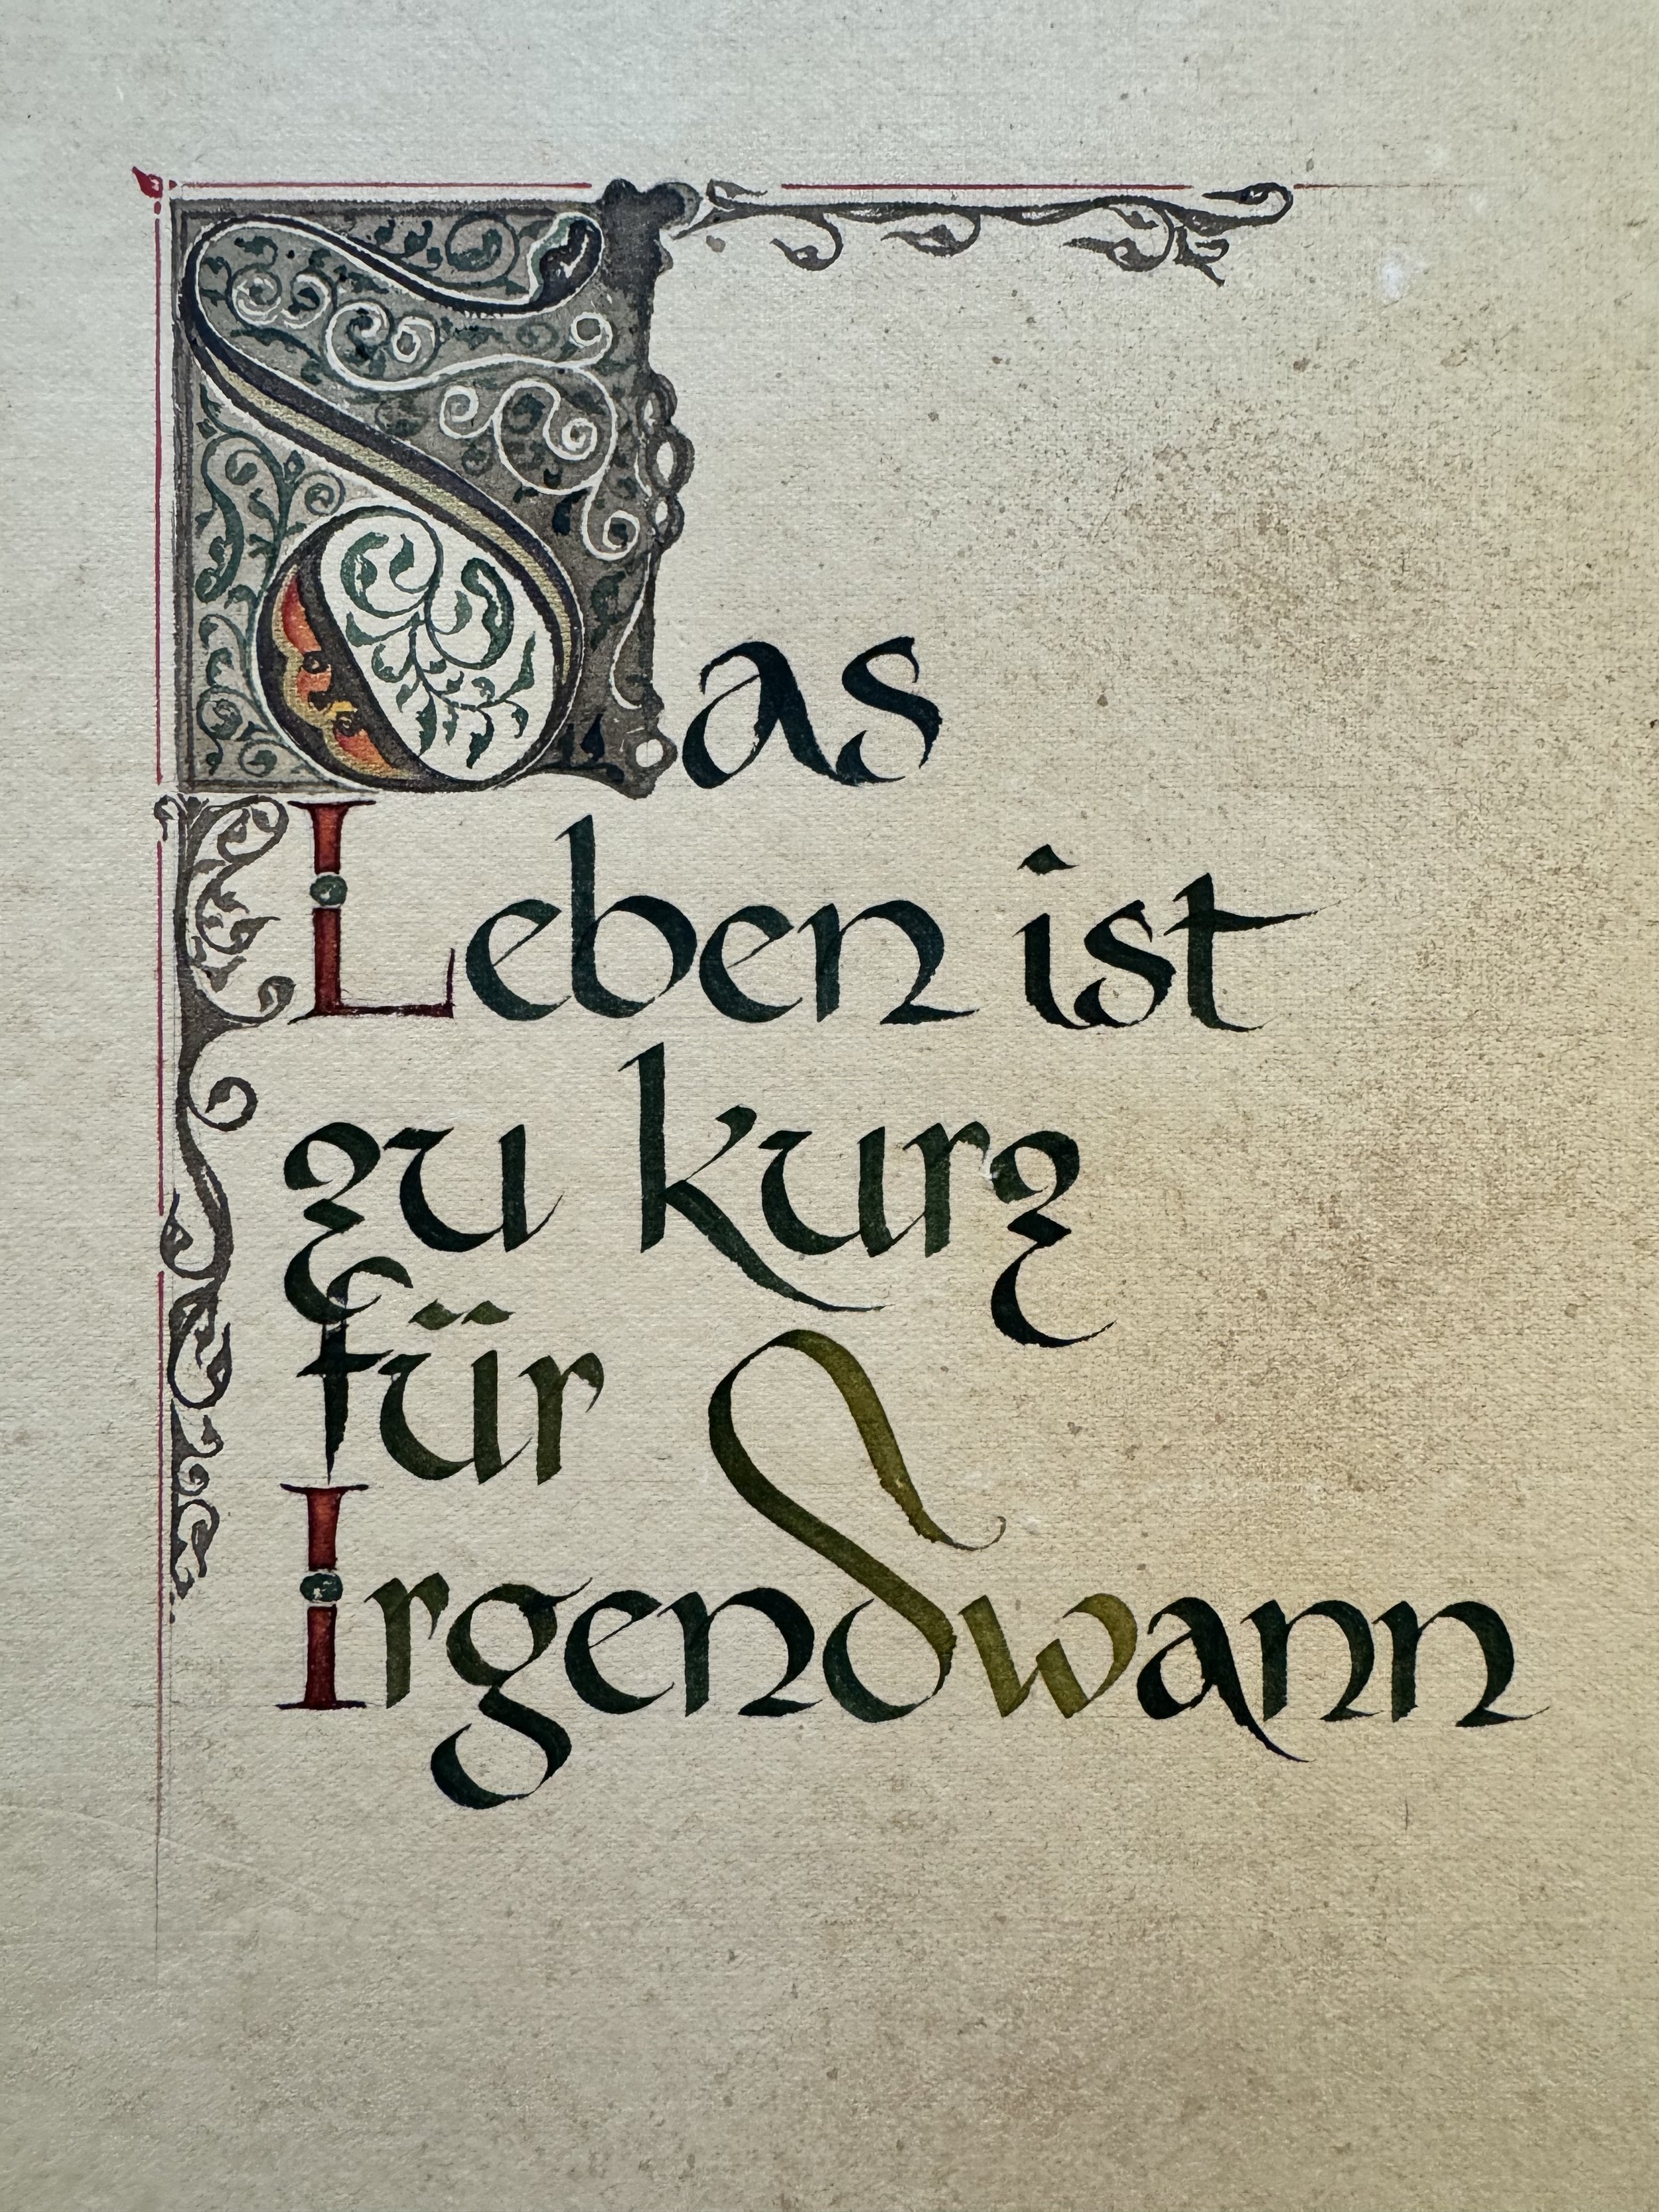 Das
Leben ist
zu kurz
für
Irgendwann